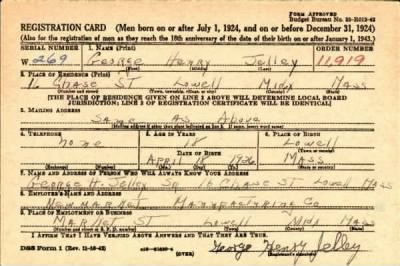 FORM APPROVED
Budget Bureau No. 33-R013-42
REGISTRATION CARD (Men born on or after July 1, 1924, and on or before December 31, 1924)
(Also for the registration of men as they reach the 18th anniversary of the date of their birth on or after January 1, 1943.)
SERIAL NUMBER 1. NAME (Print) ORDER NUMBER
W 269 George Henry Jelley 11,919
(First) (Middle) (Last)
2. PLACE OF RESIDENCE (Print)
16 Chase ST Lowell Midx Mass
(Number and street) (Town, township, village, or city) (County) (State)
[THE PLACE OF RESIDENCE GIVEN ON LINE 2 ABOVE WILL DETERMINE LOCAL BOARD
JURISDICTION; LINE 2 OF REGISTRATION CERTIFICATE WILL BE IDENTICAL]
3. MAILING ADDRESS
Same As Above
[Mailing address if other than place indicated on line 2. If same, insert word same]
4. TELEPHONE 5. AGE IN YEARS 6. PLACE OF BIRTH
none 18 Lowell
DATE OF BIRTH
April 18 1926 Mass
(Mo.) (Day) (Yr.)
7. NAME AND ADDRESS OF PERSON WHO WILL ALWAYS KNOW YOUR ADDRESS
George H. Jelley Sr 16 Chase ST Lowell Mass
8. EMPLOYER'S NAME AND ADDRESS
Newmarket Manufacturing Co
9. PLACE OF EMPLOYMENT OR BUSINESS
Market ST Lowell Midx Mass
(Number and street or R. F. D. number) (Town) (County) (State)
I AFFIRM THAT I HAVE VERIFIED ABOVE ANSWERS AND THAT THEY ARE TRUE.
DSS Form 1 (Rev. 11-16-42)
(OVER) George Henry Jelley